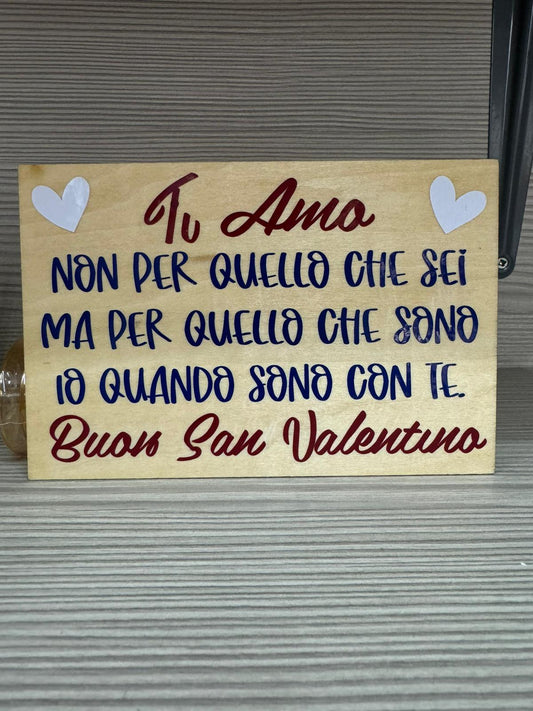 Tu Amo
NON PER QUELLO CHE SEI
MA PER QUELLO CHE SONO
IO QUANDO SONO CON TE.
Buon San Valentino